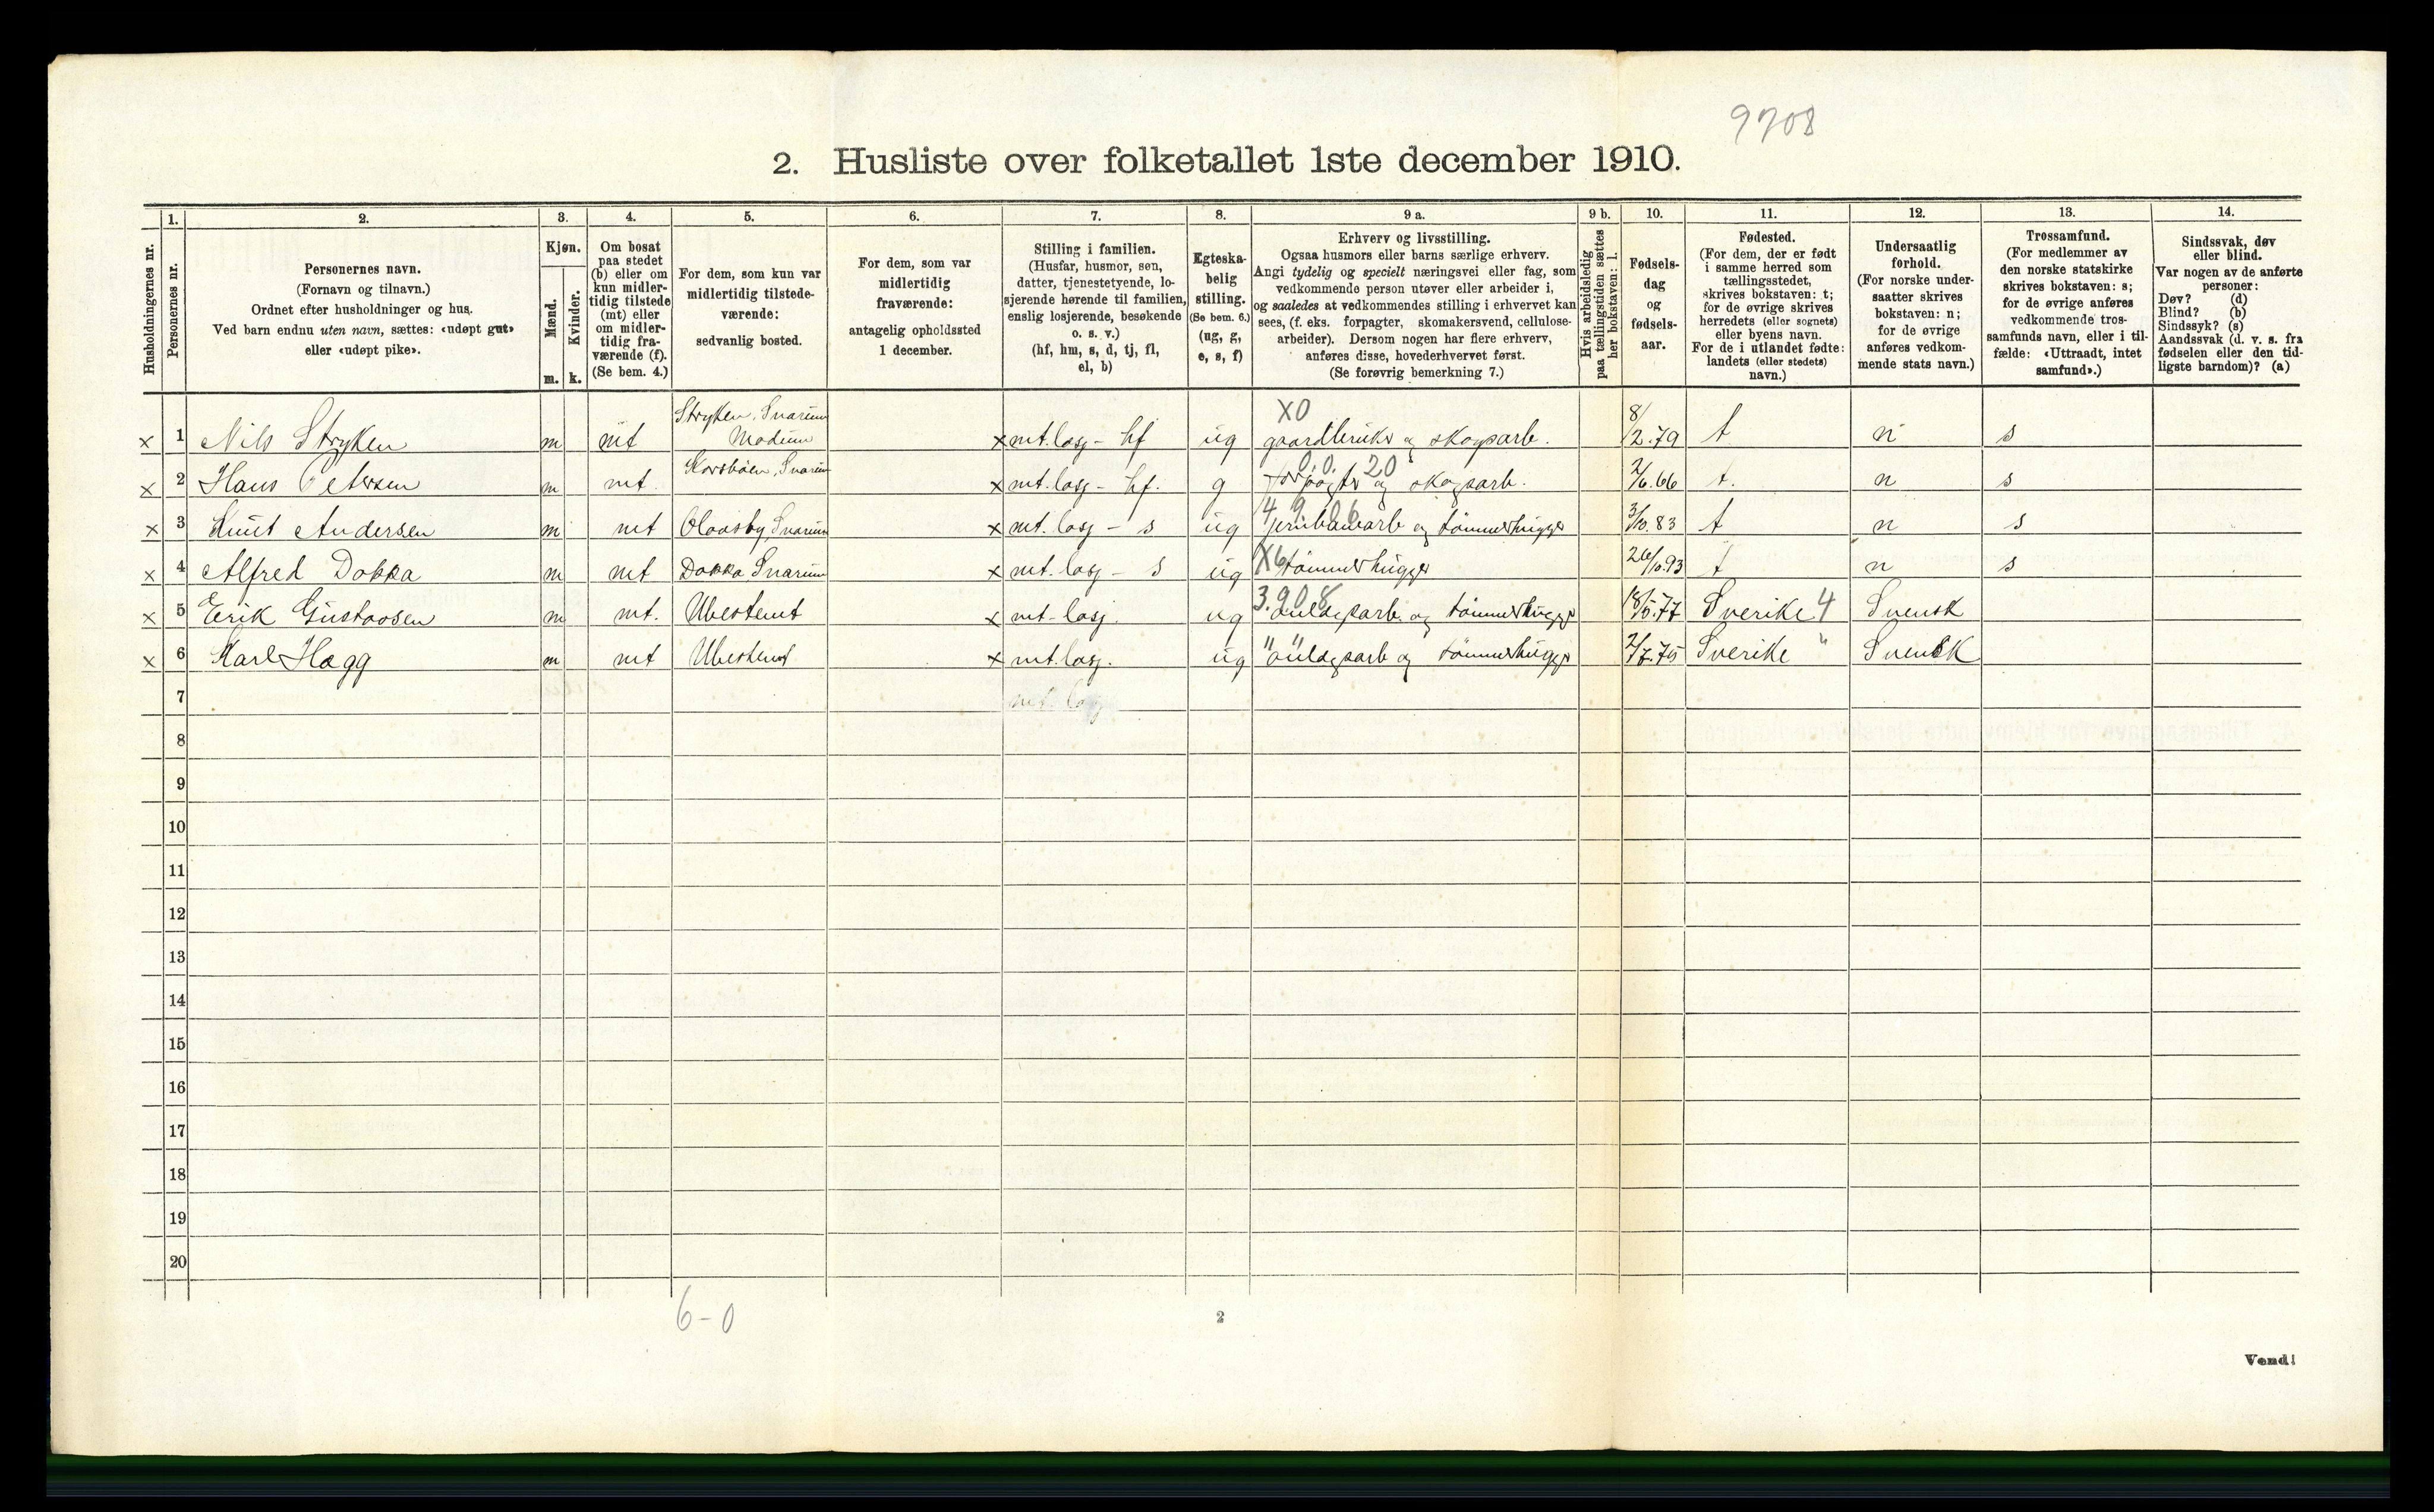 9708
2. Husliste over folketallet 1ste december 1910.
1. 2. 3. 4. 5. 6. 7. 8. 9 a. 9 b. 10. 11. 12. 13. 14.
Husholdningernes nr.
Personernes nr.
Personernes navn.
(Fornavn og tilnavn.)
Ordnet efter husholdninger og hus.
Ved barn endnu uten navn, sættes: «udøpt gut»
eller «udøpt pike».
Kjøn.
Mænd.
Kvinder.
m. k.
Om bosat
paa stedet
(b) eller om
kun midler-
tidig tilstede
(mt) eller
om midler-
tidig fra-
værende (f).
(Se bem. 4.)
For dem, som kun var
midlertidig tilstede-
værende:
sedvanlig bosted.
For dem, som var
midlertidig
fraværende:
antagelig opholdssted
1 december.
Stilling i familien.
(Husfar, husmor, søn,
datter, tjenestetyende, lo-
sjerende hørende til familien,
enslig losjerende, besøkende
o. s. v.)
(hf, hm, s, d, tj, fl,
el, b)
Egteska-
belig
stilling.
(Se bem. 6.)
(ug, g,
e, s, f)
Erhverv og livsstilling.
Ogsaa husmors eller barns særlige erhverv.
Angi tydelig og specielt næringsvei eller fag, som
vedkommende person utøver eller arbeider i,
og saaledes at vedkommendes stilling i erhvervet kan
sees, (f. eks. forpagter, skomakersvend, cellulose-
arbeider). Dersom nogen har flere erhverv,
anføres disse, hovederhvervet først.
(Se forøvrig bemerkning 7.)
Hvis arbeidsledig
paa tællingstiden sættes
her bokstaven: l.
Fødsels-
dag
og
fødsels-
aar.
Fødested.
(For dem, der er født
i samme herred som
tællingsstedet,
skrives bokstaven: t;
for de øvrige skrives
herredets (eller sognets)
eller byens navn.
For de i utlandet fødte:
landets (eller stedets)
navn.)
Undersaatlig
forhold.
(For norske under-
saatter skrives
bokstaven: n;
for de øvrige
anføres vedkom-
mende stats navn.)
Trossamfund.
(For medlemmer av
den norske statskirke
skrives bokstaven: s;
for de øvrige anføres
vedkommende tros-
samfunds navn, eller i til-
fælde: «Uttraadt, intet
samfund».)
Sindssvak, døv
eller blind.
Var nogen av de anførte
personer:
Døv? (d)
Blind? (b)
Sindssyk? (s)
Aandssvak (d. v. s. fra
fødselen eller den tid-
ligste barndom)? (a)
Stryken, Snarum X0
x 1 Nils Stryken m mt Modum x mt. losj - hf ug gaardbruker og skogsarb. 8/2.79 t n s
0.0. 20
x 2 Hans Petersen m mt. Korsbøen, Snarum x mt. losj - hf. g forpagter og skogsarb. 2/6.66 t. n s
x 3 Knut Andersen m mt Olaasby, Snarum x mt. losj - s ug jernbanearb og tømmerhugger 3/10.83 t n s
x 4 Alfred Dokka m mt Dokka Snarum x mt. losj - s ug X6 tømmerhugger 26/10.93 t n s
3.908
x 5 Erik Gustavsen m mt. Ubestemt x mt-losj. ug anlægsarb. og tømmerhugger 18/5.77 Sverike 4 Svensk
x 6 Karl Hægg m mt Ubestemt x mt. losj. ug " " anlægsarb og tømmerhugger 2/7.75 Sverike " Svensk
7 mt. losj
8
9
10
11
12
13
14
15
16
17
18
19
20
6-0
2
Vend!